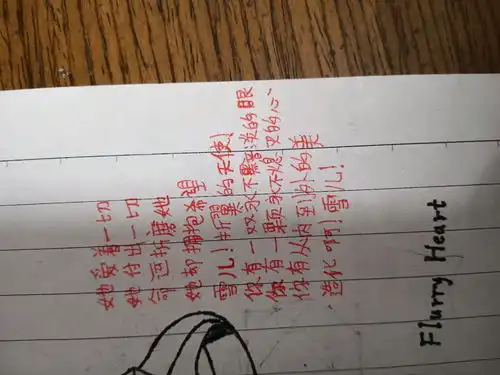 她爱着一切
她付出一切
命运折磨她
她却拥抱希望
雪儿！折翼的天使！
你有一双永不黯淡的眼
你有一颗永不熄灭的心
你有从内到外的美
造化啊！雪儿！
Flurry Heart